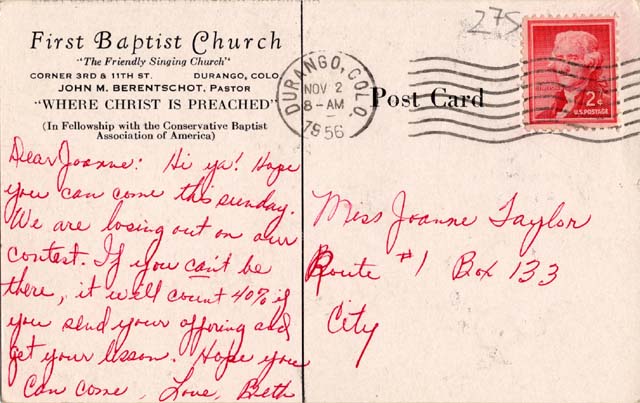 First Baptist Church
"The Friendly Singing Church"
CORNER 3RD & 11TH ST. DURANGO, COLO.
JOHN M. BERENTSCHOT, PASTOR
"WHERE CHRIST IS PREACHED"
(In Fellowship with the Conservative Baptist
Association of America)
Dear Joanne: Hi ya! Hope
you can come this sunday.
We are losing out on our
contest. If you can't be
there, it will count 40% if
you send your offering and
get your lesson. Hope you
can come, Love, Beth
275
DURANGO, COLO.
NOV 2
8-AM
1956
Post Card
2¢
U.S. POSTAGE
Miss Joanne Taylor
Route #1 Box 133
City